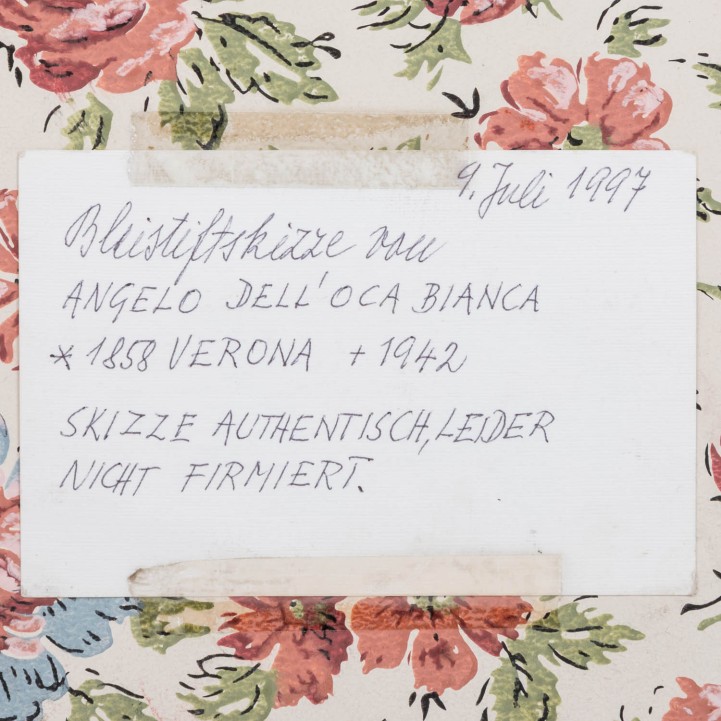 9. Juli 1997
Bleistiftskizze von
ANGELO DELL'OCA BIANCA
* 1858 VERONA + 1942
SKIZZE AUTHENTISCH, LEIDER
NICHT FIRMIERT.